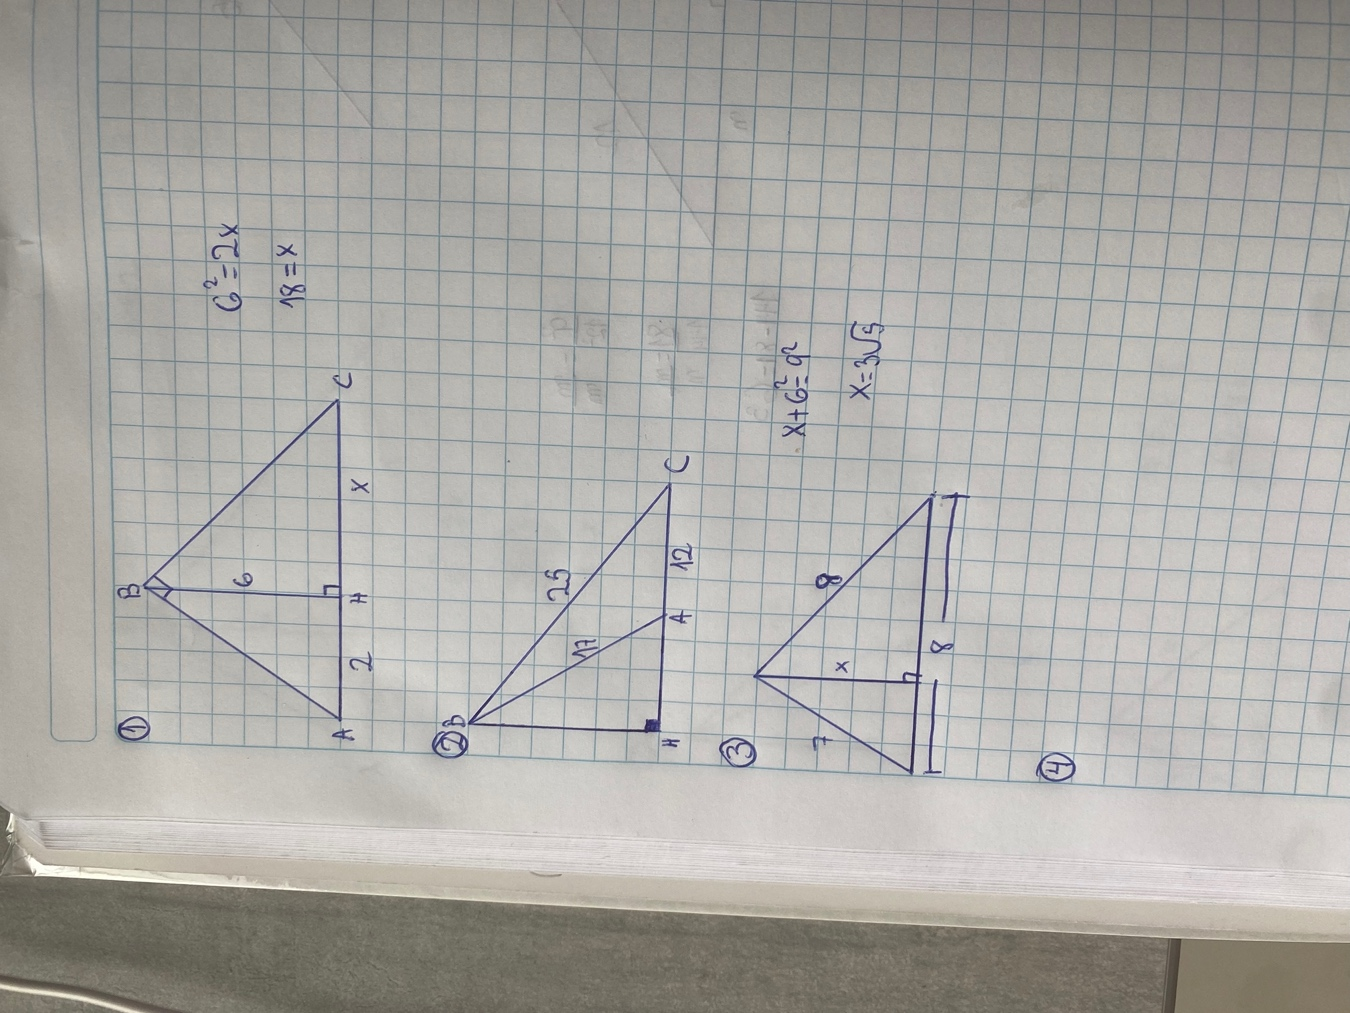 ①
B
6
A
2
H
x
C
6²=2x
18=x
②
B
25
17
H
A
12
C
③
7
x
8
8
x+6²=9²
x=3√5
④